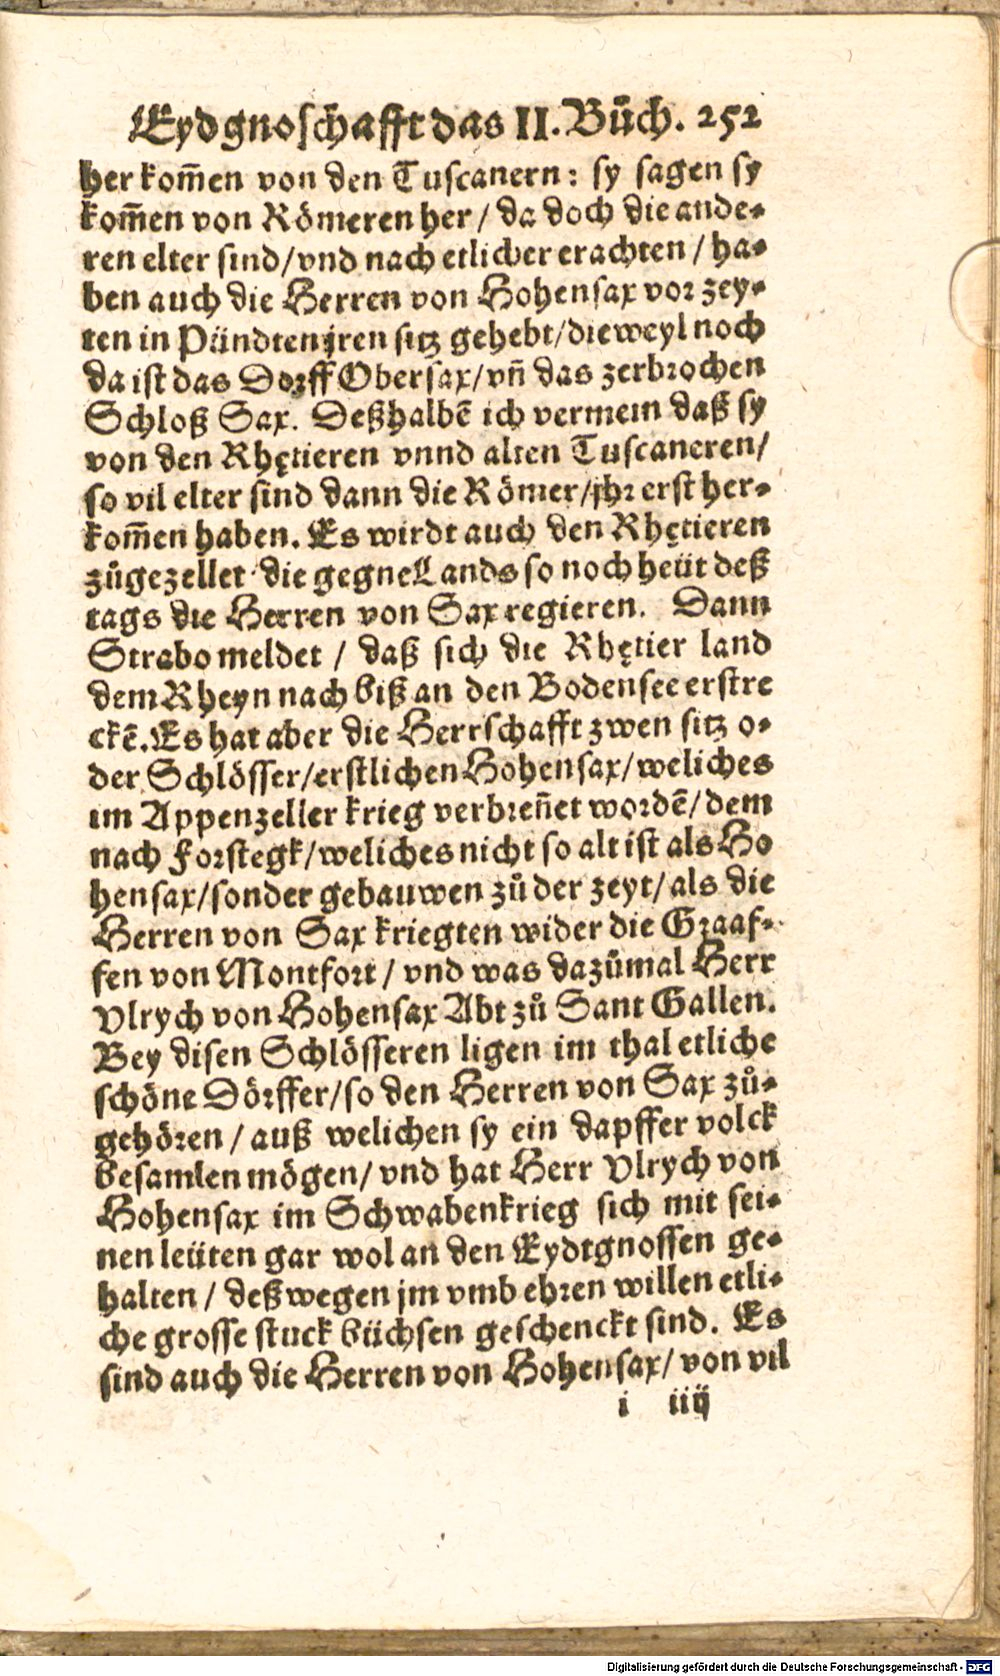 Eydgnoschafft das II. Bůch. 252
her kom̃en von den Tuscanern: sy sagen sy
kom̃en von Römeren her / da doch die ande-
ren elter sind/vnd nach etlicher erachten / ha-
ben auch die Herren von Hohensax vor zey-
ten in Pündten jren sitz gehebt/dieweyl noch
da ist das Dorff Obersax/vñ das zerbrochen
Schloß Sax. Deßhalbẽ ich vermein daß sy
von den Rhętieren vnnd alten Tuscaneren/
so vil elter sind dann die Römer/jhr erst her-
kom̃en haben. Es wirdt auch den Rhętieren
zůgezellet die gegne Lands so noch heüt deß
tags die Herren von Sax regieren. Dann
Strabo meldet / daß sich die Rhętier land
dem Rheyn nach biß an den Bodensee erstre
ckẽ. Es hat aber die Herrschafft zwen sitz o-
der Schlösser/erstlichen Hohensax/weliches
im Appenzeller krieg verbreñet wordẽ/dem
nach Forstegk/weliches nicht so alt ist als Ho
hensax/sonder gebauwen zů der zeyt/als die
Herren von Sax kriegten wider die Graaf-
fen von Montfort / vnd was dazůmal Herr
Vlrych von Hohensax Abt zů Sant Gallen.
Bey disen Schlösseren ligen im thal etliche
schöne Dörffer/so den Herren von Sax zů-
gehören / auß welichen sy ein dapffer volck
besamlen mögen/ vnd hat Herr Vlrych von
Hohensax im Schwabenkrieg sich mit sei-
nen leüten gar wol an den Eydtgnossen ge-
halten / deßwegen jm vmb ehren willen etli-
che grosse stuck büchsen geschenckt sind. Es
sind auch die Herren von Hohensax/ von vil
i iiij
Digitalisierung gefördert durch die Deutsche Forschungsgemeinschaft - DFG